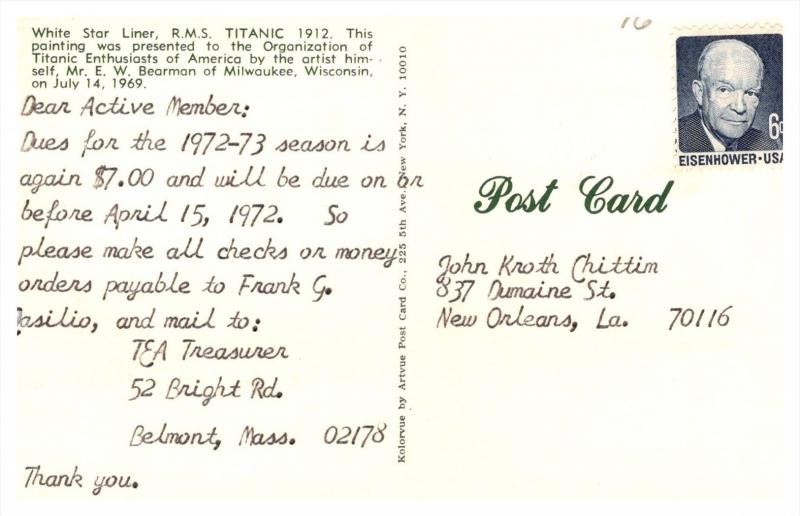 White Star Liner, R.M.S. TITANIC 1912. This
painting was presented to the Organization of
Titanic Enthusiasts of America by the artist him-
self, Mr. E. W. Bearman of Milwaukee, Wisconsin,
on July 14, 1969.
Dear Active Member:
Dues for the 1972-73 season is
again $7.00 and will be due on or
before April 15, 1972. So
please make all checks or money
orders payable to Frank G.
Casilio, and mail to:
TEA Treasurer
52 Bright Rd.
Belmont, Mass. 02178
Thank you.
Kolorvue by Artvue Post Card Co., 225 5th Ave., New York, N. Y. 10010
16
EISENHOWER·USA
6c
Post Card
John Kroth Chittim
837 Dumaine St.
New Orleans, La. 70116